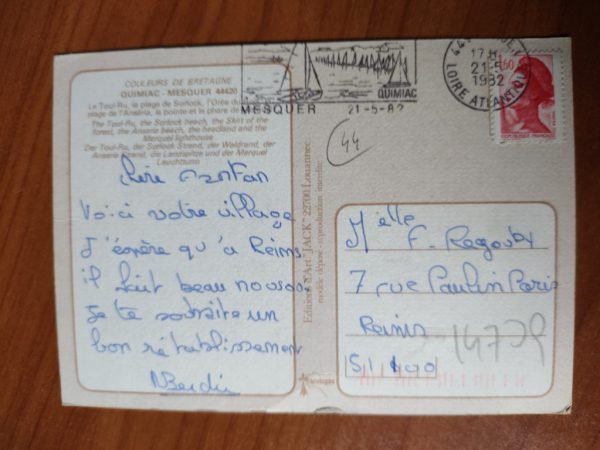 COULEURS DE BRETAGNE
QUIMIAC - MESQUER 44420
Le Toul-Ru, la plage de Sorlock, l'Orée du
plage de l'Anséria, la pointe et le phare de
The Toul-Ru, the Sorlock beach, the Skirt of the
forest, the Anseria beach, the headland and the
Merquel lighthouse
Der Toul-Ru, der Sorlock Strand, der Waldrand, der
Anseria Strand, die Landspitze und der Merquel
Leuchtturm
Voici votre village
J'éspère qu'à Reims
il fait beau nous
Je te souhaite un
bon rétablissement
MESQUER
QUIMIAC
21-5-82
17 H
21-5
1982
LOIRE ATLANTIQUE
1,60
REPUBLIQUE FRANÇAISE
44
Editions d'Art "JACK" 22700 Louannec
modèle déposé - reproduction interdite
Melle
F. Regoubx
7 rue Paulin Paris
Reims
51 100